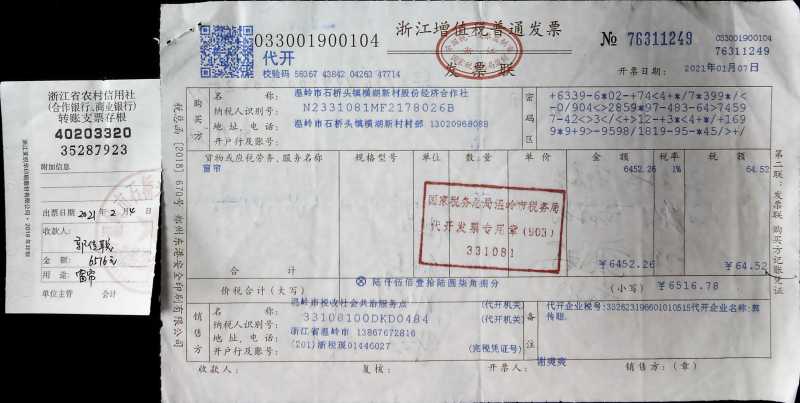 浙江省农村信用社
(合作银行、商业银行)
转账支票存根
40203320
35287923
附加信息
出票日期 2021 年 2 月 4 日
收款人:
金 额: 6576元
用 途: 窗帘
单位主管 会计
浙江增值税普通发票
发 票 联
033001900104
代开
校验码 56367 43842 04263 47714
№ 76311249
033001900104
76311249
开票日期: 2021年01月07日
购买方
名 称: 温岭市石桥头镇横湖新村股份经济合作社
纳税人识别号: N2331081MF2178026B
地 址、电 话: 温岭市石桥头镇横湖新村村部 13020968088
开户行及账号:
密码区
+6339-6*02-+74<4+*/7*399*/<
-0/904<>2859*97-483-64>7459
7-42<>3</+>12-+3*<4+*/+169
9*9+9>-9598/1819-95-45/>+/
货物或应税劳务、服务名称 规格型号 单位 数 量 单 价 金 额 税率 税 额
窗帘 6452.26 1% 64.52
国家税务总局温岭市税务局
代开发票专用章(903)
331081
合 计 ¥6452.26 ¥64.52
价税合计(大写) ⊗ 陆仟伍佰壹拾陆圆柒角捌分 (小写) ¥6516.78
销售方
名 称: 温岭市税收社会共治服务点 (代开机关)
纳税人识别号: 33108100DKD0484 (代开机关)
地 址、电 话: 浙江省温岭市 13867672816
开户行及账号: (201)浙税现01446027 (完税凭证号)
备注
代开企业税号:332623196601010515代开企业名称:郭
传聪.
收款人: 复核: 开票人: 谢爽爽 销售方:(章)
第二联:发票联 购买方记账凭证